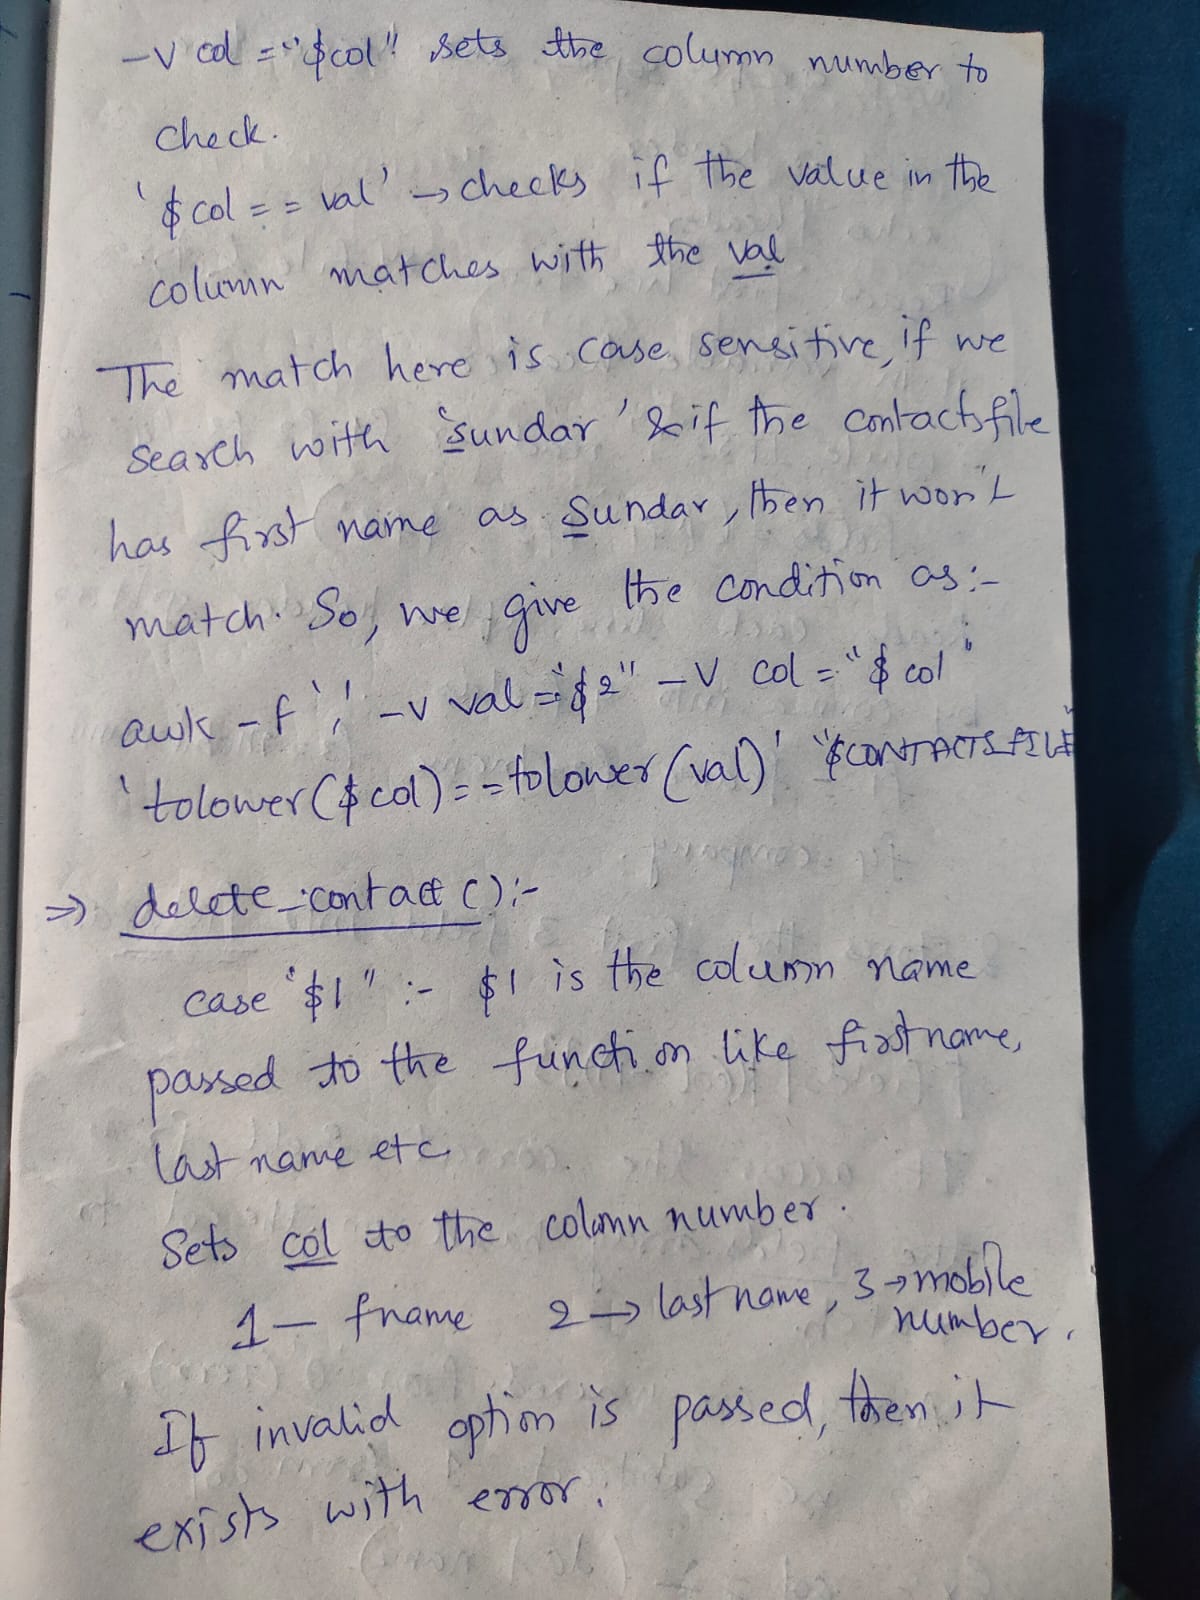 -v col ="$col" sets the column number to
check.
'$col == val' → checks if the value in the
column matches with the val
The match here is case sensitive, if we
search with 'sundar' & if the contactsfile
has first name as Sundar, then it won't
match. So, we give the condition as :-
awk -f ',' -v val ="$2" -v col = "$col"
'tolower($col)==tolower(val)' "$CONTACTS_FILE"
⇒ delete_contact() :-
case "$1" :- $1 is the column name
passed to the function like firstname,
last name etc
Sets col to the column number.
1 — fname 2 → last name, 3 → mobile
number.
If invalid option is passed, then it
exists with error.